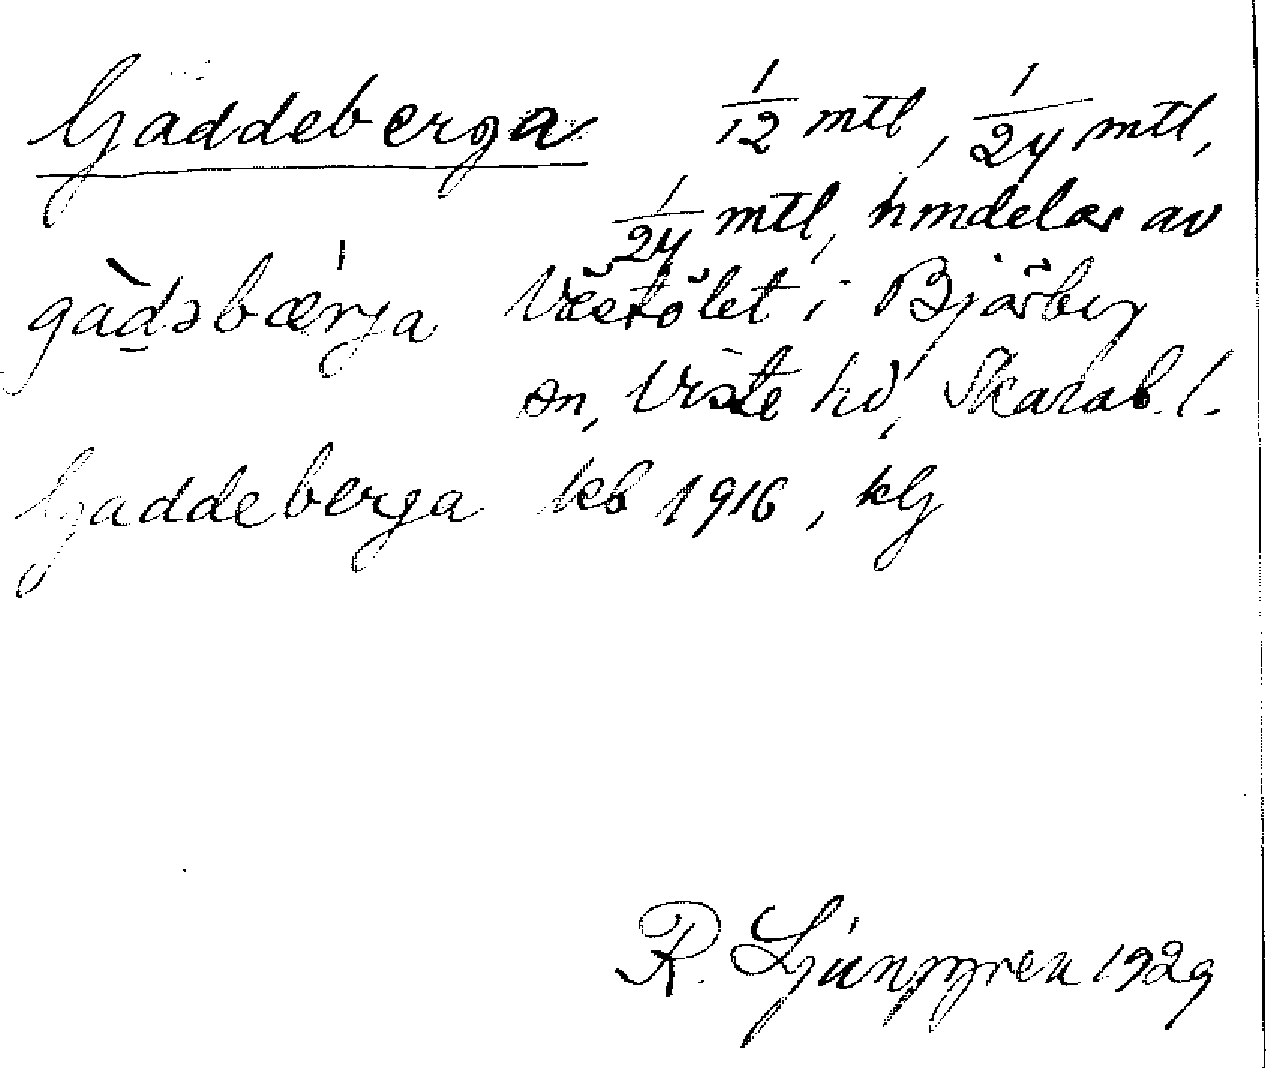 Gaddeberga 1/12 mtl, 1/24 mtl,
1/24 mtl, hmdelar av
gàdəbǽrja Västölet i Bjärby
sn, Viste hd, Skarab. l.
Gaddeberga kb 1916, klg
R. Ljunggren 1929